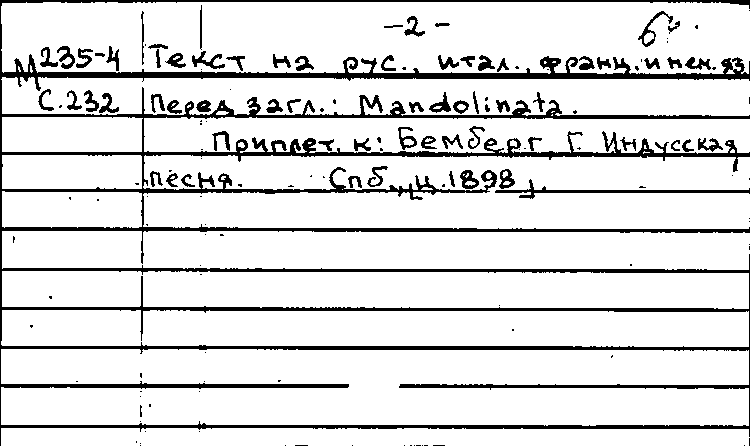 -2-
М 235-4 Текст на рус., итал., франц. и нем. яз
С.232 Перед загл.: Mandolinata.
Приплет. к: Бемберг, Г. Индусская
песня. Спб., [ц. 1898].